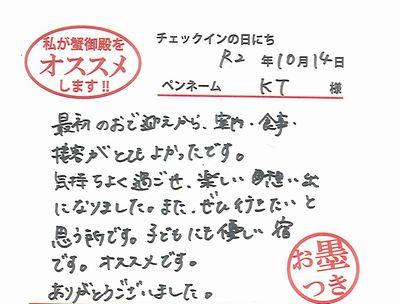 私が蟹御殿を
オススメ
します!!
チェックインの日にち
R2 年10月14日
ペンネーム KT 様
最初のおで迎えから、案内・食事・
接客がとてもよかったです。
気持ちよく過ごせ、楽しい思い出
になりました。また、ぜひ行きたいと
思う所です。子どもにも優しい宿
です。オススメです。
ありがとうございました。
お墨
つき